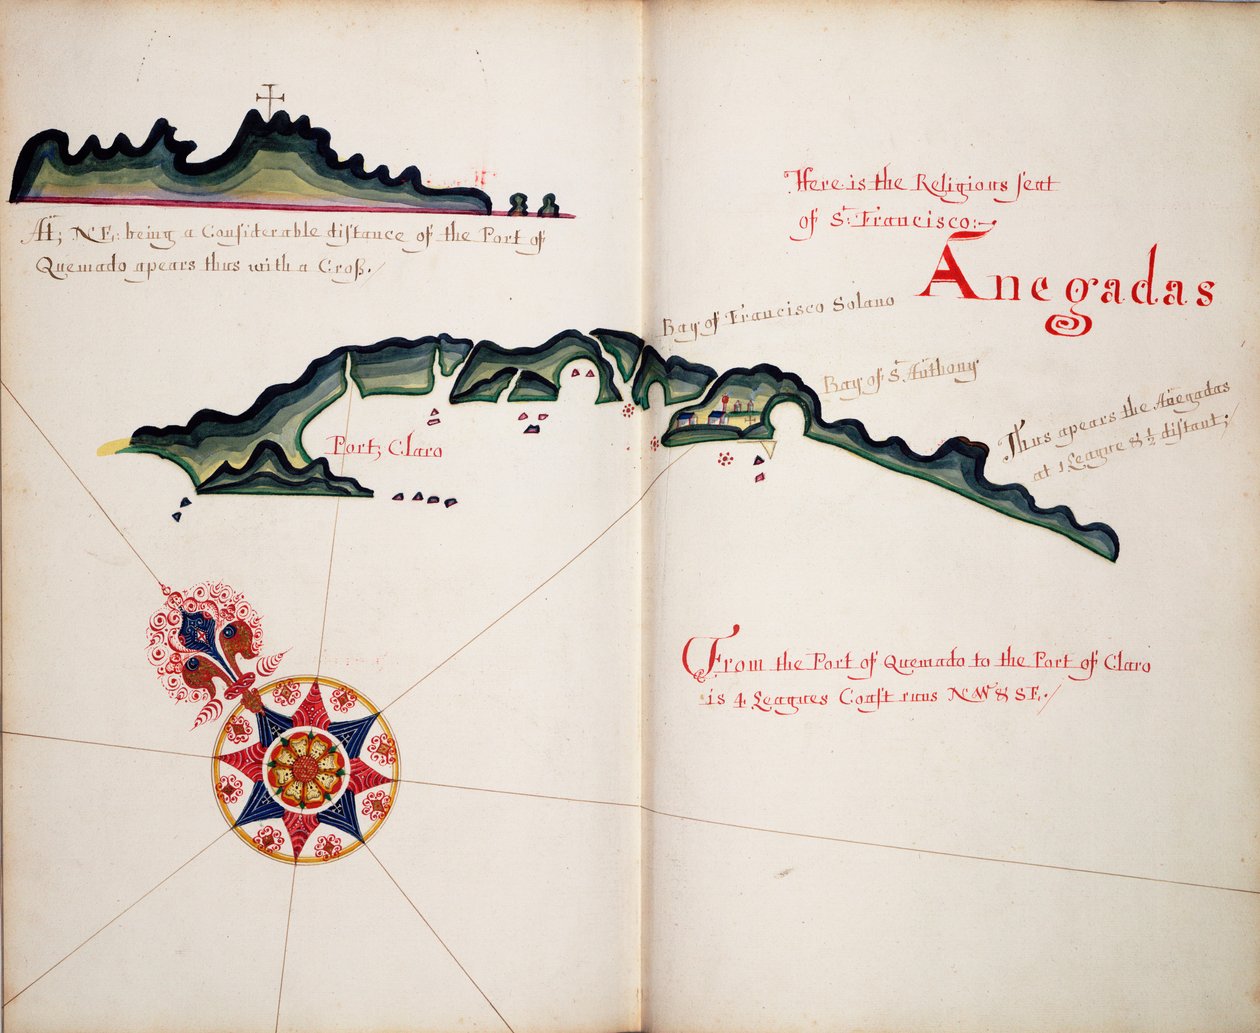 At; N E: being a Considerable distance of the Port of
Quemado apears thus with a Cross./
Here is the Religious seat
of St: Francisco:~
Anegadas
Bay of Francisco Solano
Bay of St Anthony
Thus apears the Anegadas
at 1 League & ½ distant;
Port; Claro
From the Port of Quemado to the Port of Claro
is 4 Leagues Coast runs N W & S E./